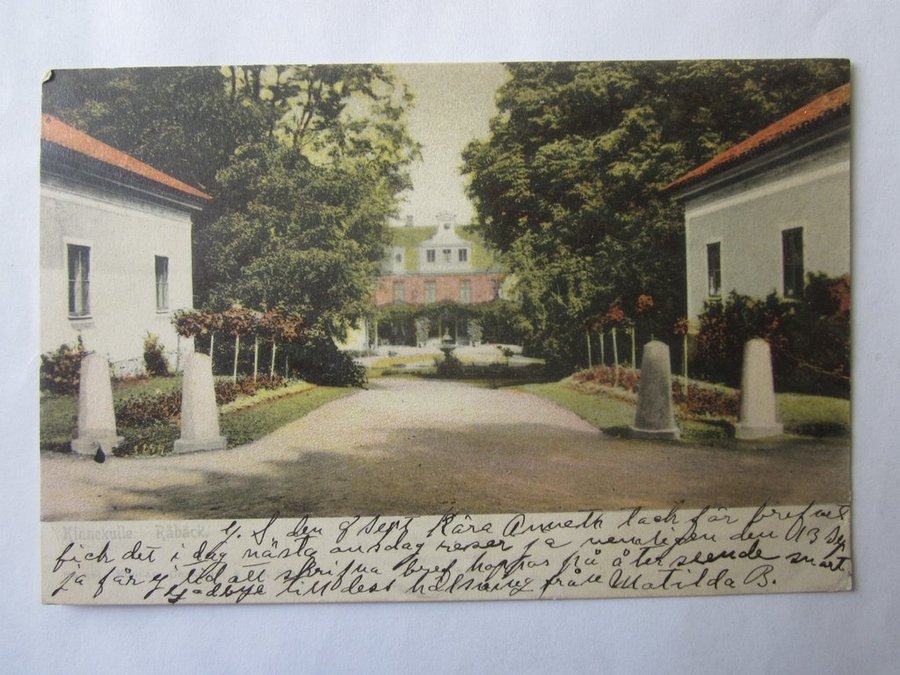 Kinnekulle. Råbäck.
G. S den 8 Sept Kära Anneth tack för brefvet
fick det i dag nästa onsdag reser ja den 13 Sep
ja får ej tid att skrifva bref hoppas på återseende snart
Godbye till dess hälsning från Matilda B.